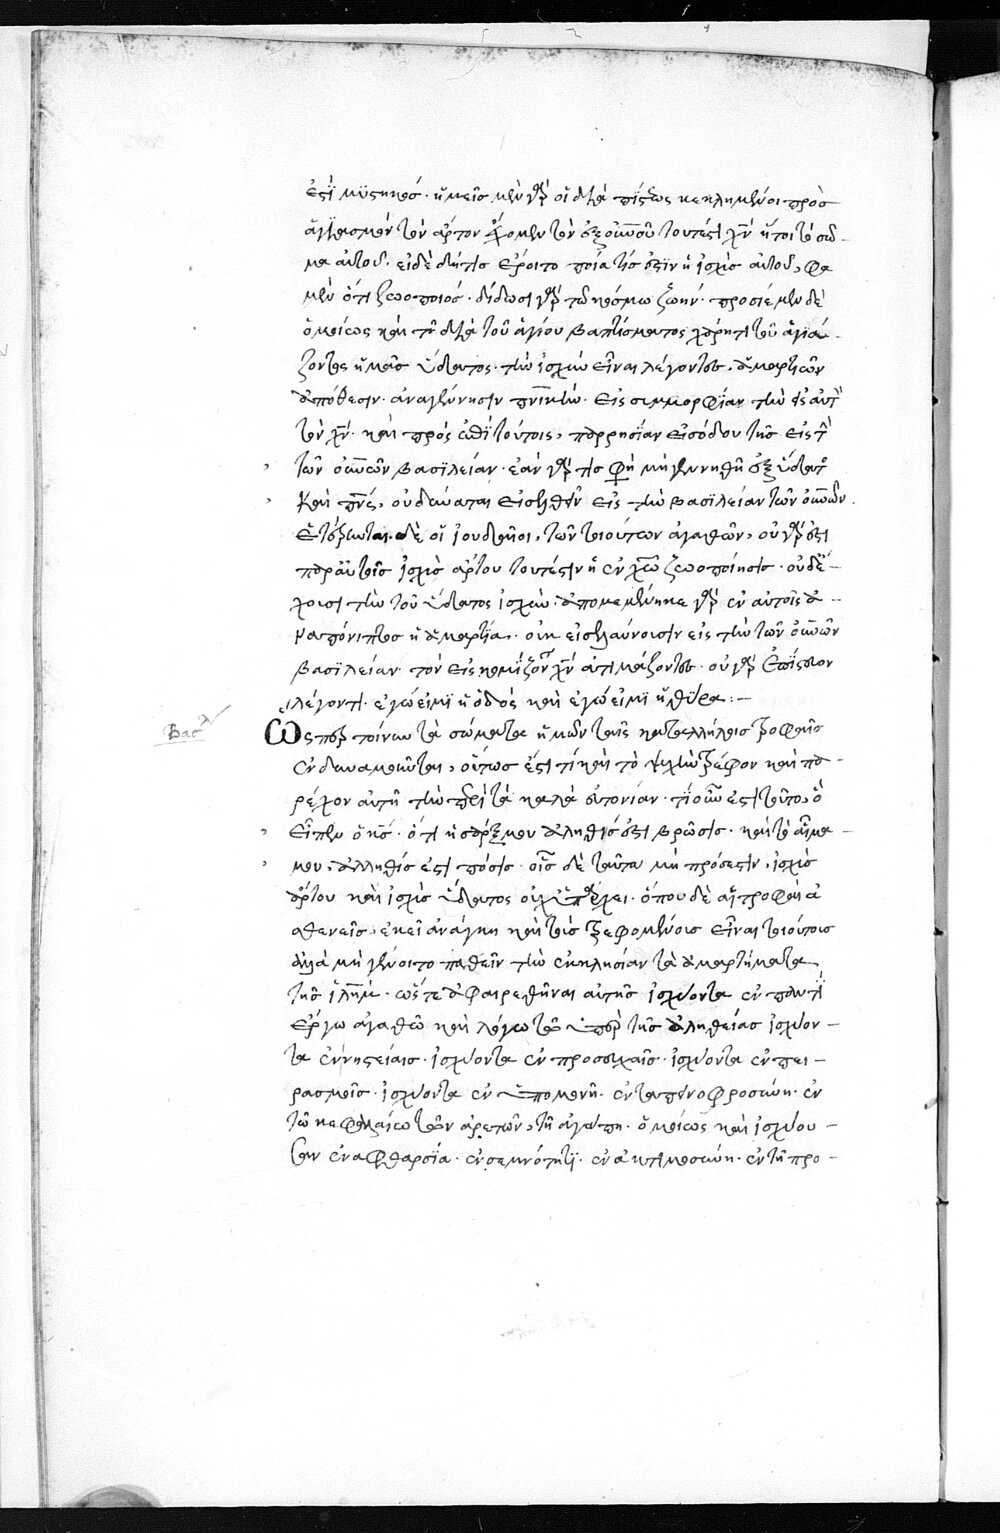 ἐστὶ μυστικός· ἡμεῖς μὲν γὰρ οἱ διὰ πίστεως κεκλημένοι πρὸς
ἁγιασμὸν τὸν ἄρτον ἔχομεν τὸν ἐξ οὐνοῦ τουτέστι χν ἤτοι τὸ σῶ-
μα αὐτοῦ. εἰ δὲ δή τις ἔροιτο ποία τίς ἐστιν ἡ ἰσχὺς αὐτοῦ, φα
μὲν ὅτι ζωοποιός· δίδωσι γὰρ τῷ κόσμῳ ζωήν· προσίεμεν δὲ
ὁμοίως καὶ τῇ διὰ τοῦ ἁγίου βαπτίσματος χάριτι τοῦ ἁγιά-
ζοντος ἡμᾶς ὕδατος· τὴν ἰσχὺν εἶναι λέγοντες, ἁμαρτιῶν
ἀπόθεσιν· ἀναγέννησιν πνικήν· εἰς συμμορφίαν τὴν εἰς αὐτὸν
τὸν χν· καὶ πρός ἐπὶ τούτοις, παρρησίαν εἰσόδου τῆς εἰς τὴν
τῶν οὐνῶν βασιλείαν· ἐὰν γάρ τις φη μὴ γεννηθῇ ἐξ ὕδατος
καὶ πνς, οὐ δύναται εἰσελθεῖν εἰς τὴν βασιλείαν τῶν οὐνῶν.
ἐστέρηνται δὲ οἱ ἰουδαῖοι, τῶν τοιούτων ἀγαθῶν, οὐ γάρ ἐστι
παρ αὐτοῖς ἰσχὺς ἄρτου τουτέστιν ἡ ἐν χω ζωοποίησις· οὐδὲ ἔ-
χουσι τὴν τοῦ ὕδατος ἰσχὺν· ἀπομεμένηκε γὰρ ἐν αὐτοῖς ἀ-
καπόνιπτος ἡ ἁμαρτία· οὐκ εἰσελαύνουσιν εἰς τὴν τῶν οὐνῶν
βασιλείαν· τὸν εἰσκομίζοντα χν ἀτιμάζοντες· οὐ γὰρ ἐπίστευον
λέγοντι· ἐγώ εἰμι ἡ ὁδός καὶ ἐγώ εἰμι ἡ θύρα:–
Βασιλ
Ὥσπερ τοίνυν τὰ σώματα ἡμῶν ταῖς καταλλήλοις τροφαῖς
ἐνδυναμοῦται, οὕτως ἐστί τι καὶ τὸ ψυχὴν τρέφον καὶ πα-
ρέχον αὐτῇ τὴν περὶ τὰ καλὰ εὐτονίαν· τί οὖν ἐστι τοῦτο, ὃ
εἶπεν ὁ κς· ὅτι ἡ σάρξ μου ἀληθὶς ἐστι βρῶσις· καὶ τὸ αἷμα
μου, ἀλληθίς ἐστι πόσις· οἷς δὲ ταῦτα μὴ πρόσεστιν, ἰσχὺς
ἄρτου καὶ ἰσχὺς ὕδατος οὐχ ὑπάρχει· ὅπου δὲ αἱ τροφαὶ ἀ
σθενεῖς, ἐκεῖ ἀνάγκη καὶ τοὺς τρεφομένους εἶναι τοιούτους
ἀλλὰ μὴ γένοιτο παθεῖν τὴν ἐκκλησίαν τὰ ἁμαρτήματα
τῆς ἱλημ· ὥστε ἀφαιρεθῆναι αὐτῆς ἰσχύοντα ἐν παντὶ
ἔργω ἀγαθῶ καὶ λόγω τῶ ὑπὲρ τῆς ἀληθείας ἰσχύον-
τα ἐν νηστείαις· ἰσχύοντα ἐν προσευχαῖς· ἰσχύοντα ἐν πει-
ρασμοῖς· ἰσχύοντα ἐν ὑπομονῇ· ἐν ταπεινοφροσύνη· ἐν
τῶ κεφαλαίω τῶν ἀρετῶν, τῆ ἀγάπη· ὁμοίως καὶ ἰσχύου-
σαν ἐν ἀφθαρσία· ἐν σεμνότητι· ἐν ἀκτημοσύνη· ἐν τῇ προ-